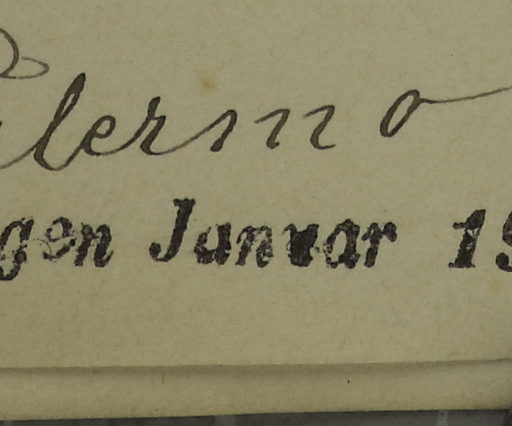 alermo
gen Januar 19